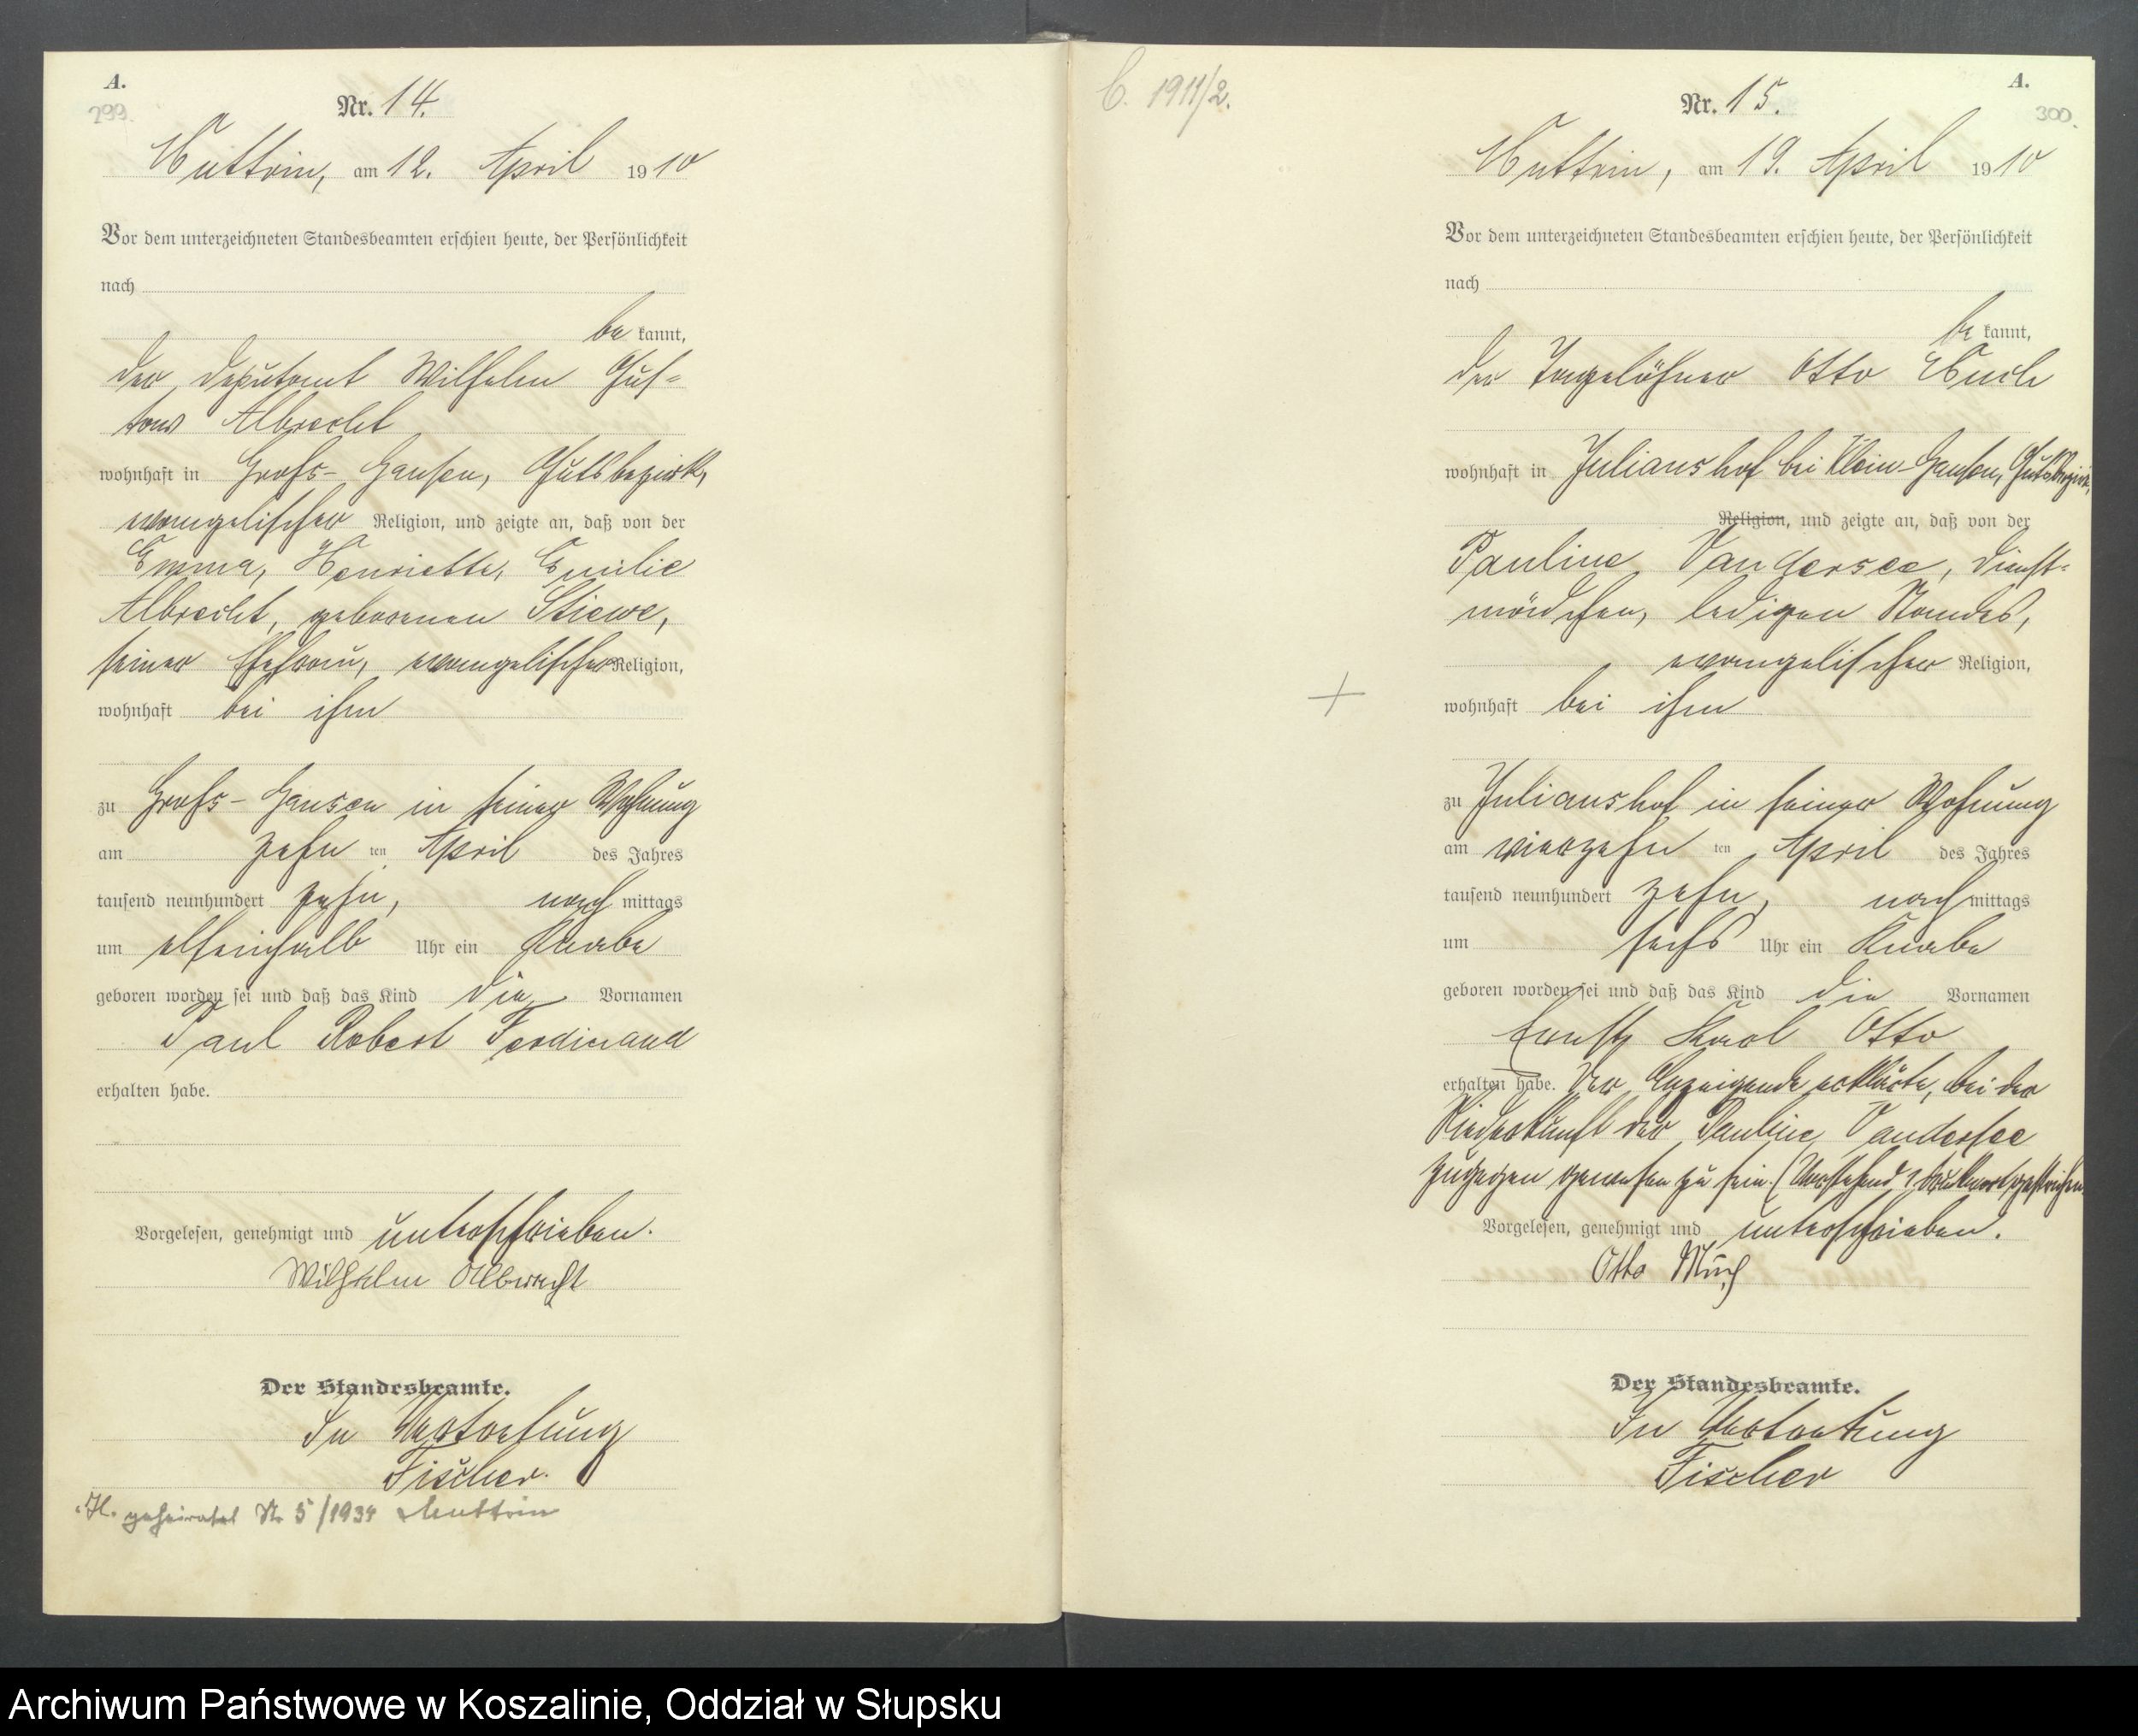 A.
299.
Nr. 14.
Muttrin, am 12. April 1910
Vor dem unterzeichneten Standesbeamten erschien heute, der Persönlichkeit
nach
be kannt,
der Deputant Wilhelm Gus=
tav Albrecht
wohnhaft in Groß-Gansen, Gutsbezirk,
evangelischer Religion, und zeigte an, daß von der
Emma, Henriette, Emilie
Albrecht, geborenen Stiewe,
seiner Ehefrau, evangelischer Religion,
wohnhaft bei ihm
zu Groß-Gansen in seiner Wohnung
am zehn ten April des Jahres
tausend neunhundert zehn, nach mittags
um elfeinhalb Uhr ein Knabe
geboren worden sei und daß das Kind die Vornamen
Paul Robert Ferdinand
erhalten habe.
Vorgelesen, genehmigt und unterschrieben.
Wilhelm Albrecht
Der Standesbeamte.
In Vertretung
Fischer.
H. geheiratet Nr. 5/1934 Muttrin
C. 1911/2.
A.
300.
Nr. 15.
Muttrin, am 19. April 1910
Vor dem unterzeichneten Standesbeamten erschien heute, der Persönlichkeit
nach
be kannt,
der Tagelöhner Otto
wohnhaft in Julianshof bei Klein-Gansen, Gutsbezirk,
Religion, und zeigte an, daß von der
Pauline Vandersee, Dienst=
mädchen, ledigen Standes,
evangelischer Religion,
wohnhaft bei ihm
zu Julianshof in seiner Wohnung
am vierzehn ten April des Jahres
tausend neunhundert zehn, nach mittags
um sechs Uhr ein Knabe
geboren worden sei und daß das Kind die Vornamen
Ernst Karl Otto
erhalten habe. Der Anzeigende erklärte, bei der
Niederkunft der Pauline Vandersee
zugegen gewesen zu sein. (Vorstehend 1 Druckwort gestrichen.
Vorgelesen, genehmigt und unterschrieben.
Otto
Der Standesbeamte.
In Vertretung
Fischer
Archiwum Państwowe w Koszalinie, Oddział w Słupsku